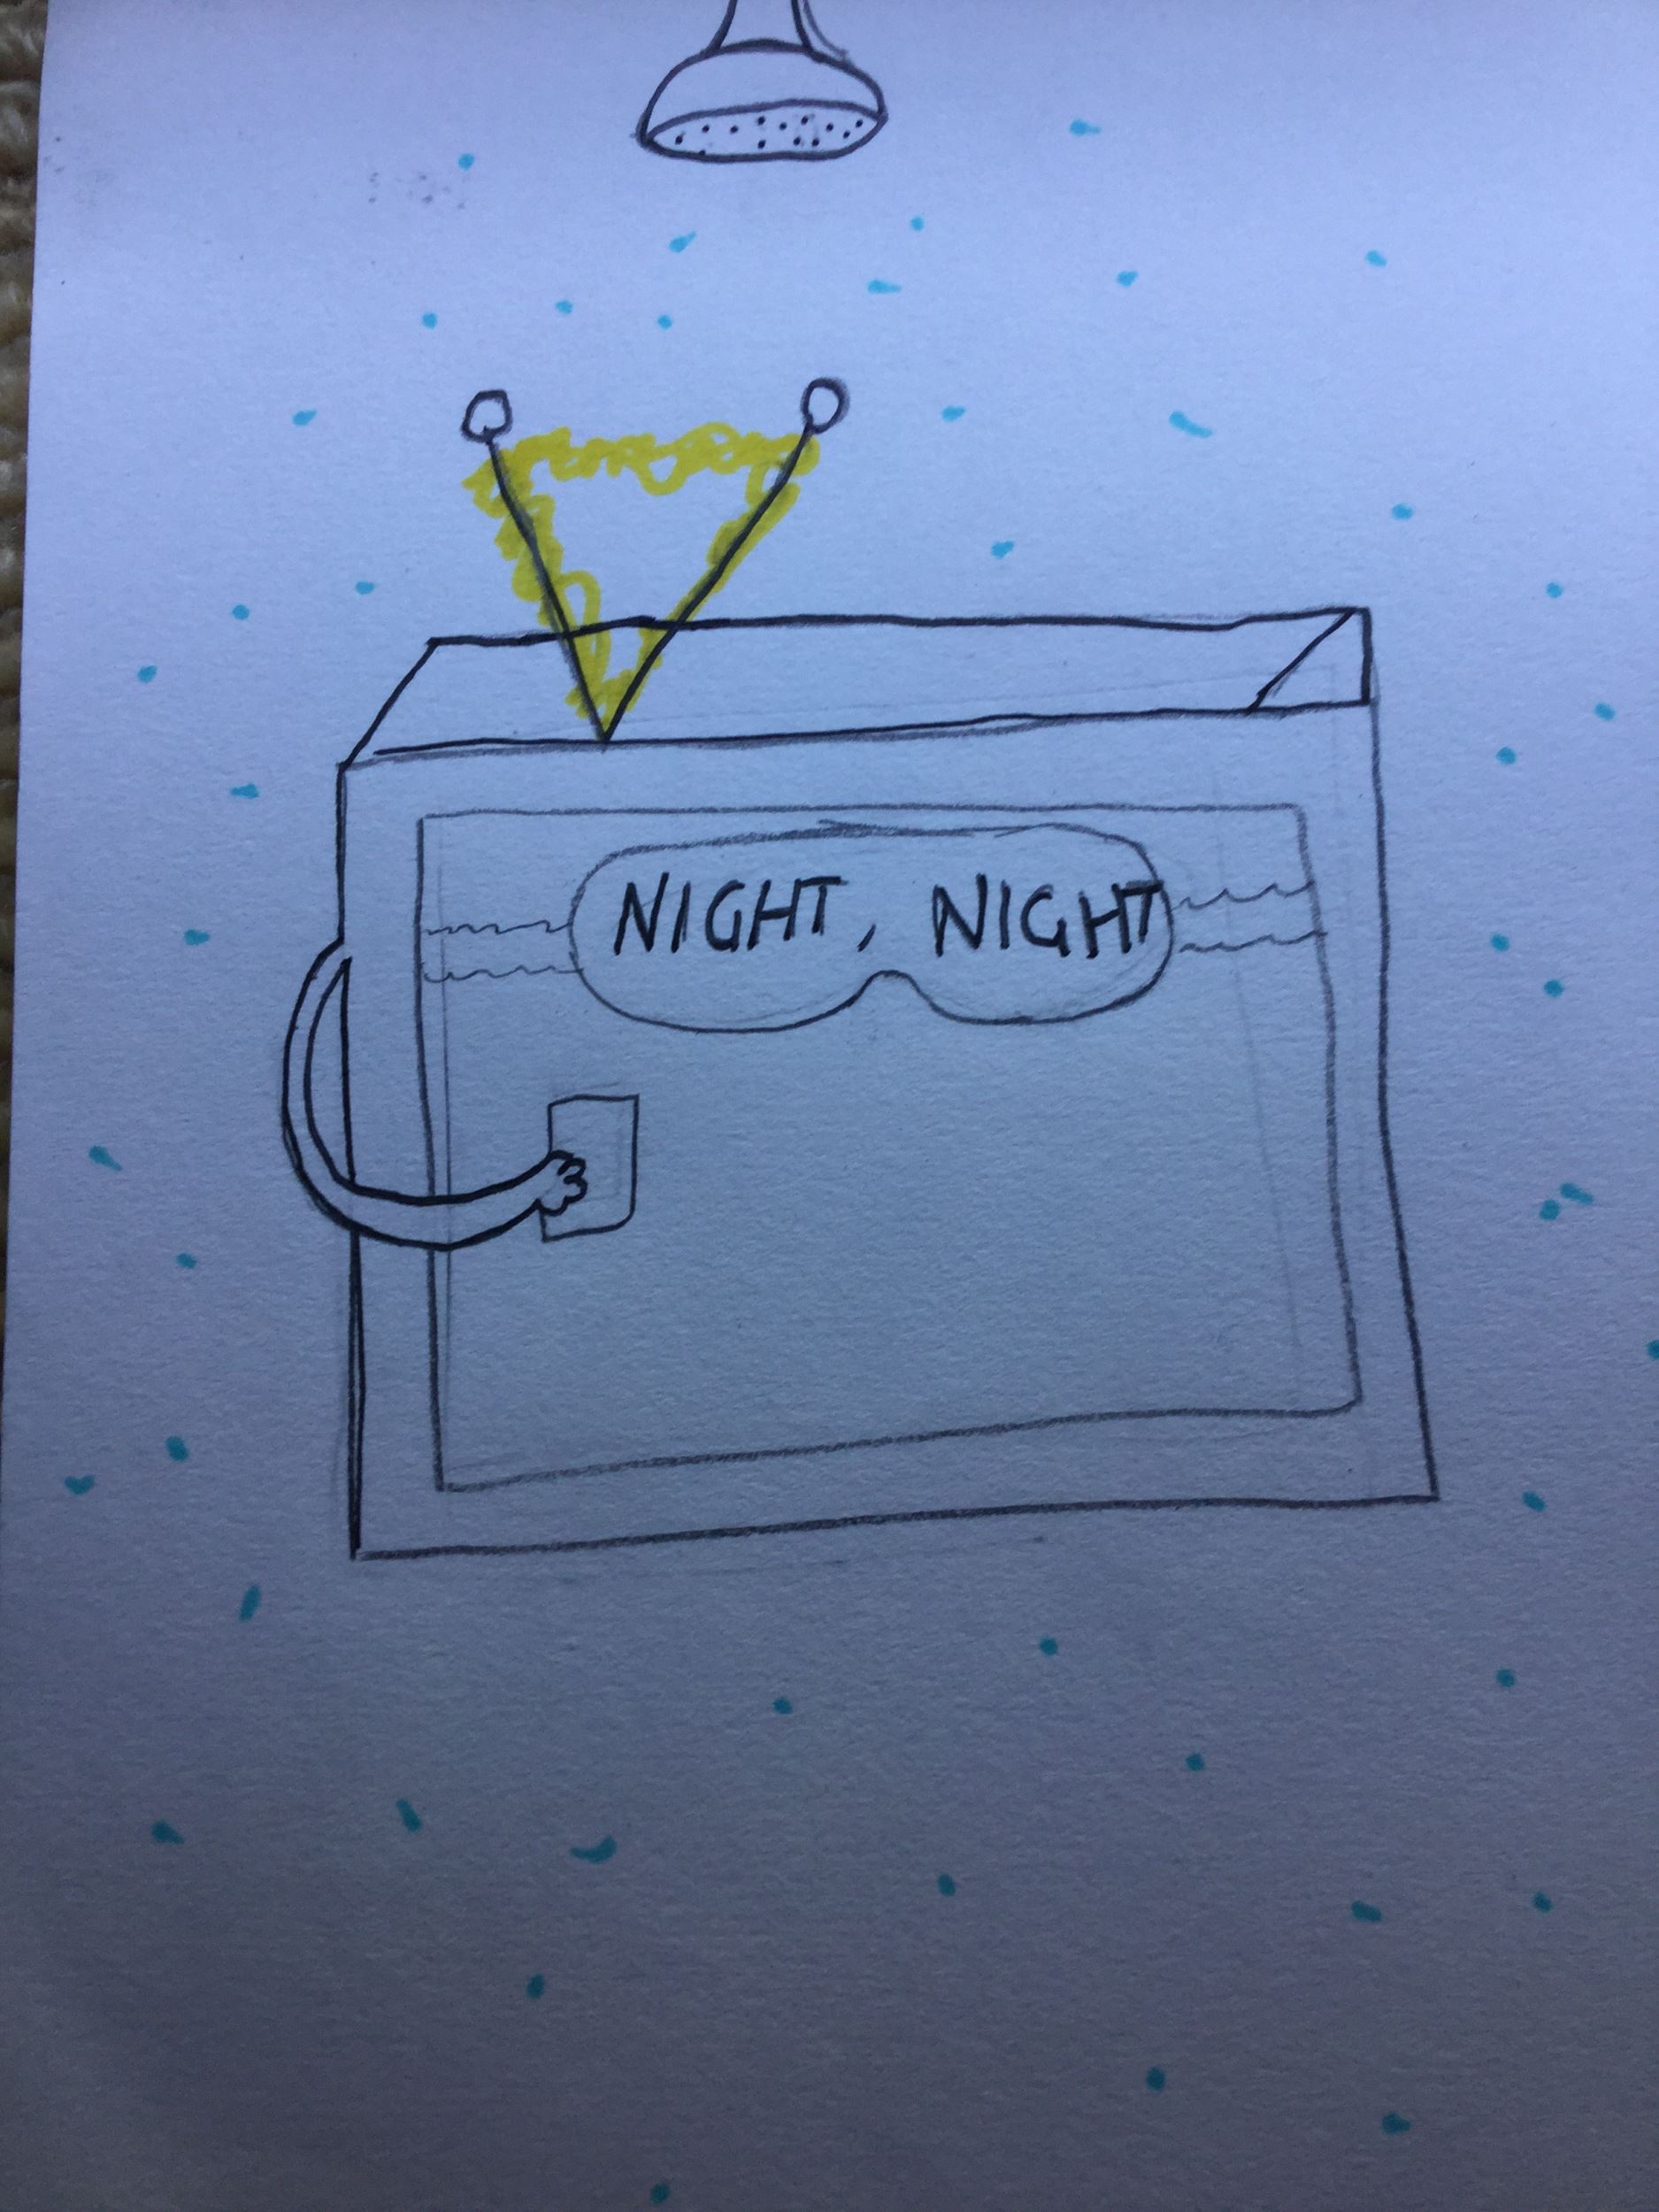 NIGHT, NIGHT